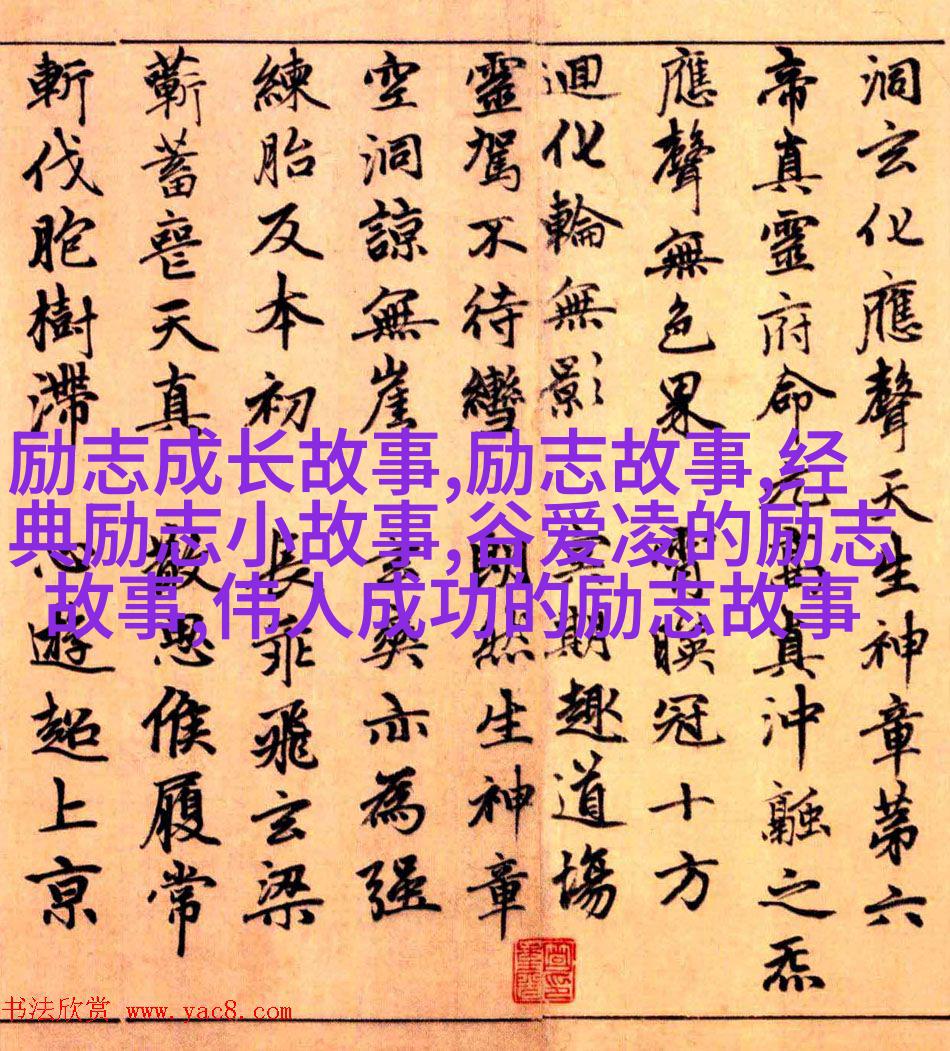 洞玄化應聲天生神章第六
帝真靈府命元真沖融之炁
應聲無色界 明映冠十方
迴化輪無影 冥期趣道場
靈駕不待轡 朗然生神章
空洞諒無崖 玄爽亦為强
練胎反本初 長乖飛玄梁
蘄蓄喪天真 散思候履常
斬伐胞樹滯 心遊超上京
励志成长故事,励志故事,经
典励志小故事,谷爱凌的励志
故事,伟人成功的励志故事
书法欣赏 www.yac8.com